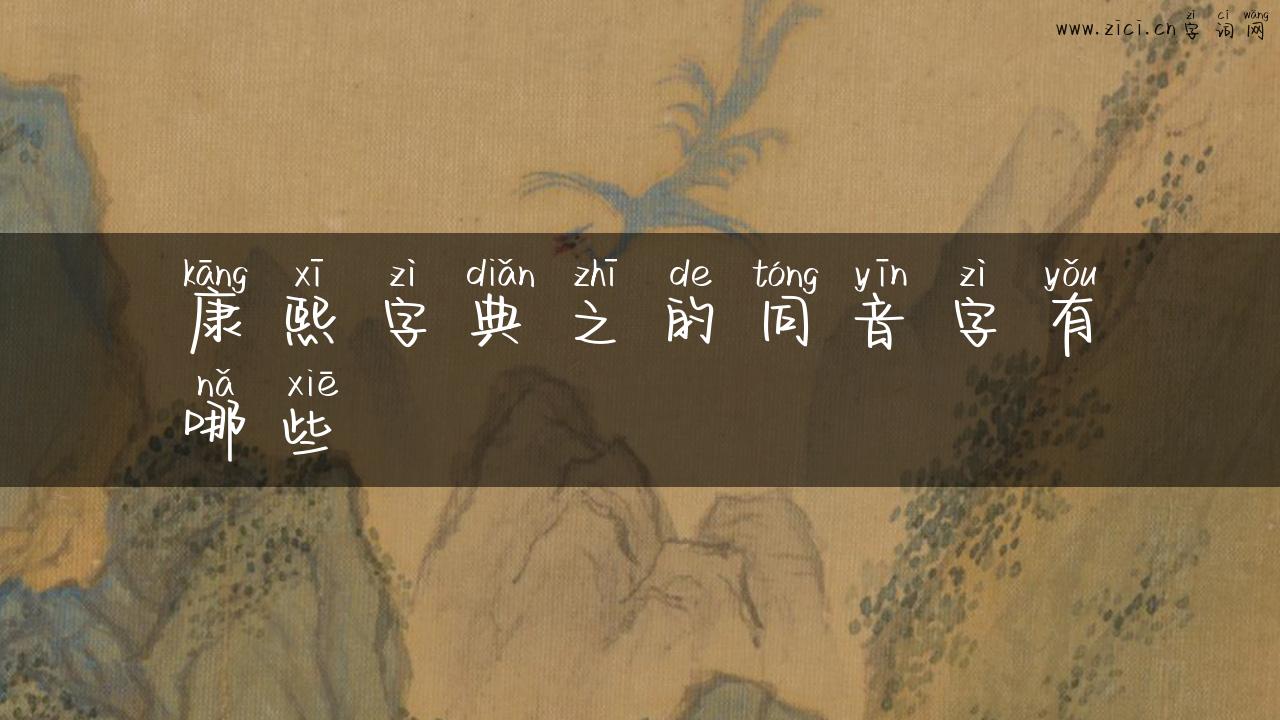 zì cí wǎng
www.zici.cn字词网
kāng xī zì diǎn zhī de tóng yīn zì yǒu
康熙字典之的同音字有
nǎ xiē
哪些